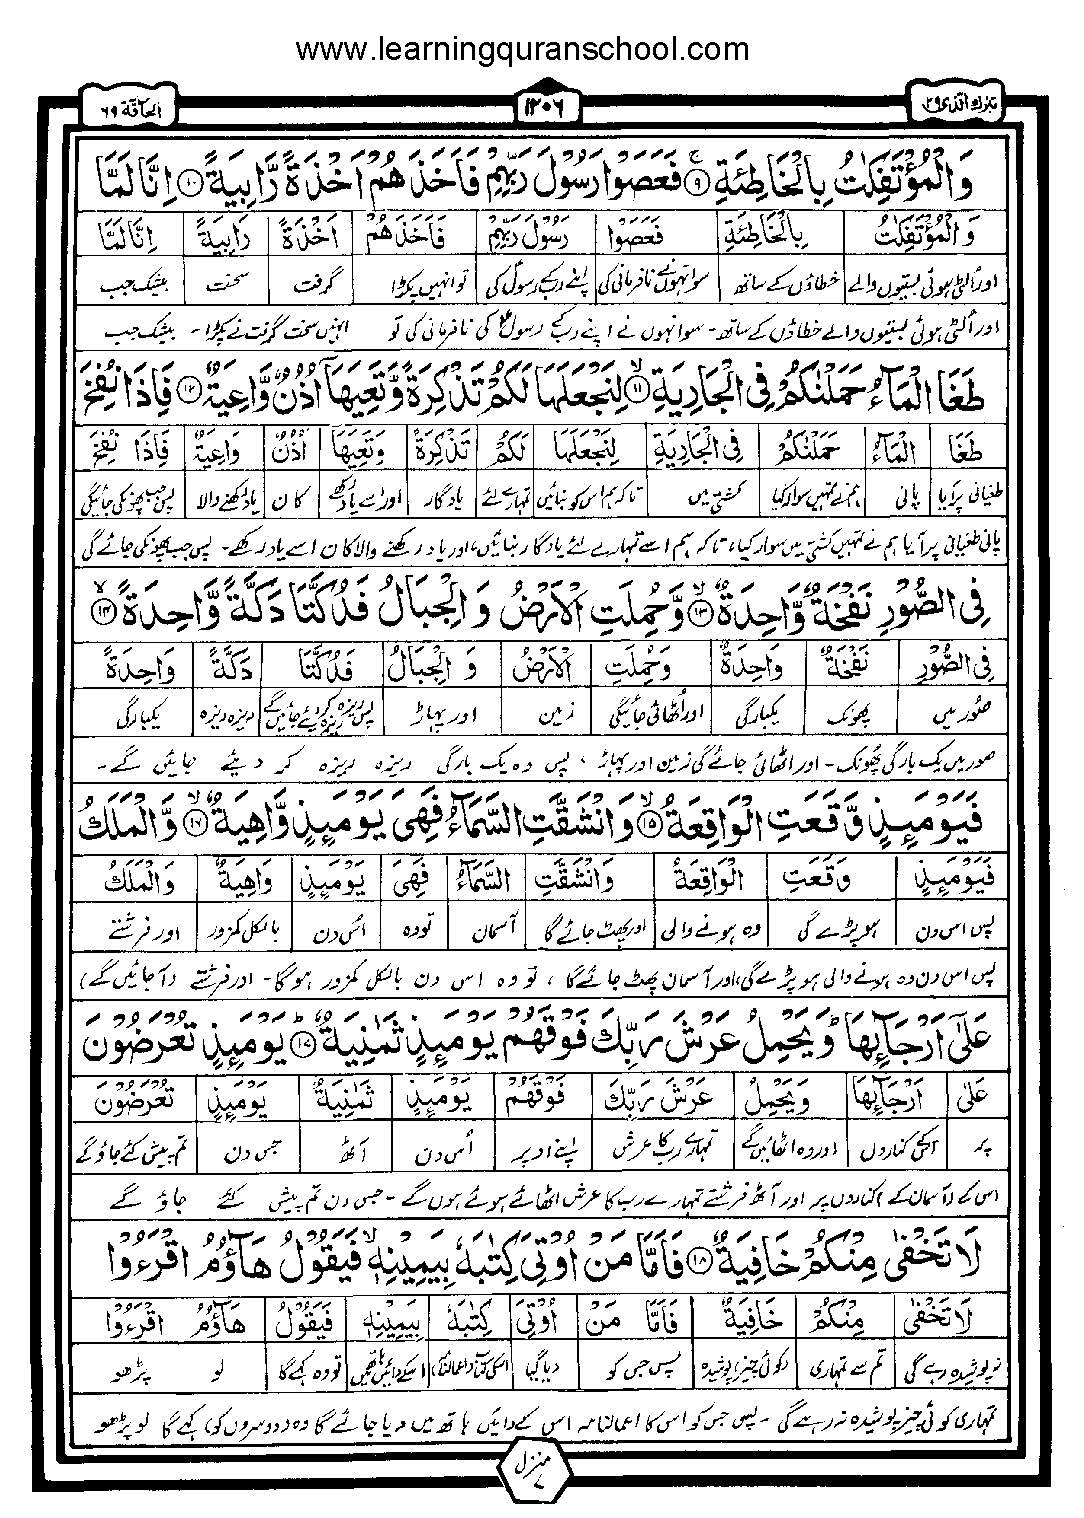 www.learningquranschool.com
تبرك الذی ۲۹
۱۲۰۶
الحآقة ۶۹
وَالْمُؤْتَفِكٰتُ بِالْخَاطِئَةِ ۹ فَعَصَوْا رَسُوْلَ رَبِّهِمْ فَاَخَذَهُمْ اَخْذَةً رَّابِيَةً ۱۰ اِنَّا لَمَّا
وَالْمُؤْتَفِكٰتُ بِالْخَاطِئَةِ فَعَصَوْا رَسُوْلَ رَبِّهِمْ فَاَخَذَهُمْ اَخْذَةً رَابِيَةً اِنَّا لَمَّا
اور الٹی ہوئی بستیوں والے خطاؤں کے ساتھ سو انہوں نے نافرمانی کی اپنے رب کے رسول کی تو انہیں پکڑا گرفت سخت بیشک جب
اور الٹی ہوئی بستیوں والے خطاؤں کے ساتھ۔ سو انہوں نے اپنے رب کے رسول کی نافرمانی کی تو انہیں سخت گرفت نے پکڑا۔ بیشک جب
طَغَا الْمَآءُ حَمَلْنٰكُمْ فِي الْجَارِيَةِ ۱۱ لِنَجْعَلَهَا لَكُمْ تَذْكِرَةً وَّتَعِيَهَآ اُذُنٌ وَّاعِيَةٌ ۱۲ فَاِذَا نُفِخَ
طَغَا الْمَآءُ حَمَلْنٰكُمْ فِي الْجَارِيَةِ لِنَجْعَلَهَا لَكُمْ تَذْكِرَةً وَتَعِيَهَا اُذُنٌ وَاعِيَةٌ فَاِذَا نُفِخَ
طغیانی پر آیا پانی ہم نے تمہیں سوار کیا کشتی میں تاکہ ہم اس کو بنائیں تمہارے لئے یادگار اور اسے یاد رکھے کان یاد رکھنے والا پس جب پھونکی جائیگی
پانی طغیانی پر آیا ہم نے تمہیں کشتی میں سوار کیا، تاکہ ہم اسے تمہارے لئے یادگار بنائیں، اور یاد رکھنے والا کان اسے یاد رکھے۔ پس جب پھونکی جائے گی
فِي الصُّوْرِ نَفْخَةٌ وَّاحِدَةٌ ۱۳ وَّحُمِلَتِ الْاَرْضُ وَالْجِبَالُ فَدُكَّتَا دَكَّةً وَّاحِدَةً ۱۴
فِي الصُّوْرِ نَفْخَةٌ وَاحِدَةٌ وَحُمِلَتِ الْاَرْضُ وَ الْجِبَالُ فَدُكَّتَا دَكَّةً وَاحِدَةً
صور میں پھونک یکبارگی اور اٹھائی جائیگی زمین اور پہاڑ پس ریزہ ریزہ کر دیئے جائیں گے ریزہ ریزہ یکبارگی
صور میں یک بارگی پھونک۔ اور اٹھائی جائے گی زمین اور پہاڑ، پس وہ یک بارگی ریزہ ریزہ کر دیئے جائیں گے۔
فَيَوْمَئِذٍ وَّقَعَتِ الْوَاقِعَةُ ۱۵ وَانْشَقَّتِ السَّمَآءُ فَهِيَ يَوْمَئِذٍ وَّاهِيَةٌ ۱۶ وَّالْمَلَكُ
فَيَوْمَئِذٍ وَقَعَتِ الْوَاقِعَةُ وَانْشَقَّتِ السَّمَآءُ فَهِيَ يَوْمَئِذٍ وَاهِيَةٌ وَالْمَلَكُ
پس اس دن ہو پڑے گی وہ ہونے والی اور پھٹ جائے گا آسمان تو وہ اس دن بالکل کمزور اور فرشتے
پس اس دن وہ ہونے والی ہو پڑے گی، اور آسمان پھٹ جائے گا، تو وہ اس دن بالکل کمزور ہوگا۔ اور فرشتے (آ جائیں گے)
عَلٰٓى اَرْجَآئِهَا وَيَحْمِلُ عَرْشَ رَبِّكَ فَوْقَهُمْ يَوْمَئِذٍ ثَمٰنِيَةٌ ۱۷ يَوْمَئِذٍ تُعْرَضُوْنَ
عَلٰى اَرْجَآئِهَا وَيَحْمِلُ عَرْشَ رَبِّكَ فَوْقَهُمْ يَوْمَئِذٍ ثَمٰنِيَةٌ يَوْمَئِذٍ تُعْرَضُوْنَ
پر اسکے کناروں اور وہ اٹھائیں گے تمہارے رب کا عرش اپنے اوپر اس دن آٹھ جس دن تم پیش کئے جاؤ گے
اس کے (آسمان کے) کناروں پر اور آٹھ فرشتے تمہارے رب کا عرش اٹھائے ہوئے ہوں گے۔ جس دن تم پیش کئے جاؤ گے
لَا تَخْفٰى مِنْكُمْ خَافِيَةٌ ۱۸ فَاَمَّا مَنْ اُوْتِيَ كِتٰبَهٗ بِيَمِيْنِهٖ فَيَقُوْلُ هَآؤُمُ اقْرَءُوْا
لَا تَخْفٰى مِنْكُمْ خَافِيَةٌ فَاَمَّا مَنْ اُوْتِيَ كِتٰبَهٗ بِيَمِيْنِهٖ فَيَقُوْلُ هَآؤُمُ اقْرَءُوْا
نہ پوشیدہ رہے گی تم سے تمہاری (کوئی چیز) پوشیدہ پس جس کو دیا گیا اسکی کتاب (اعمالنامہ) اسکے دائیں ہاتھ میں تو وہ کہے گا لو پڑھو
تمہاری کوئی چیز پوشیدہ نہ رہے گی۔ پس جس کو اس کا اعمالنامہ اس کے دائیں ہاتھ میں دیا جائے گا وہ (دوسروں کو) کہے گا لو پڑھو
منزل ۷